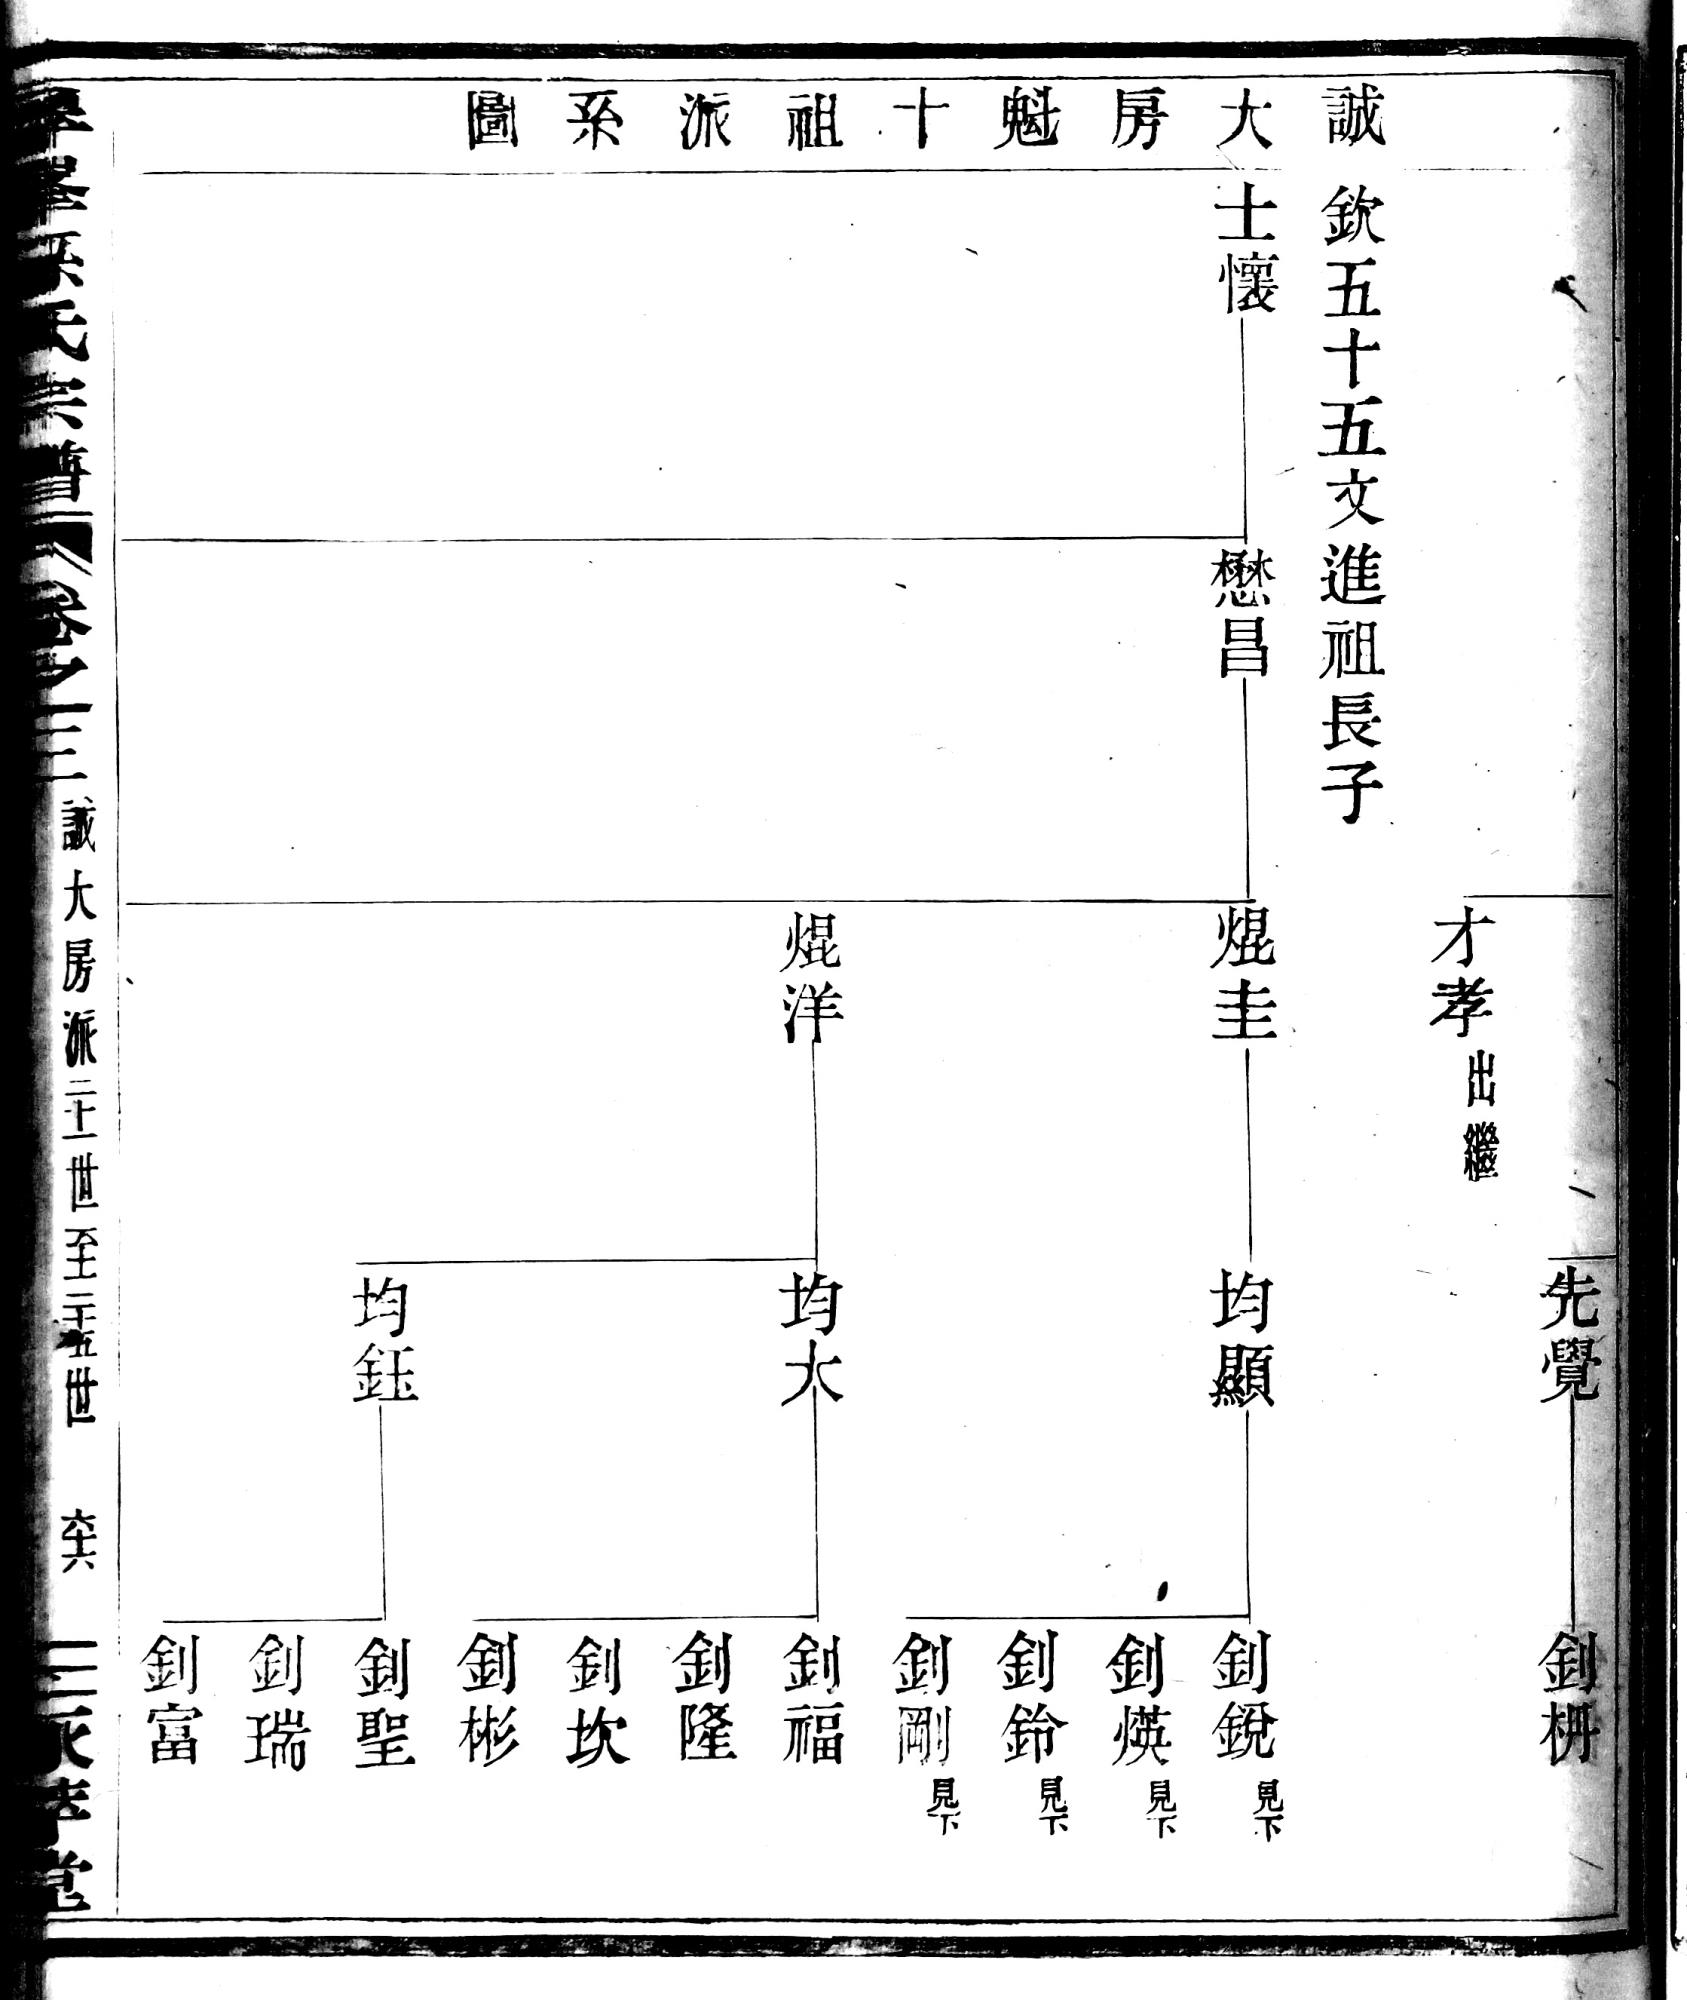 先覺
釗枬
才孝出繼
誠大房魁十祖派系圖
欽五十五文進祖長子
士懷
懋昌
焜圭
均顯
釗銳見下
釗煐見下
釗鈴見下
釗剛見下
焜洋
均大
釗福
釗隆
釗坎
釗彬
均鈺
釗聖
釗瑞
釗富
氏宗譜
卷之三
誠大房派二十一世至二十五世
六十六
孝堂